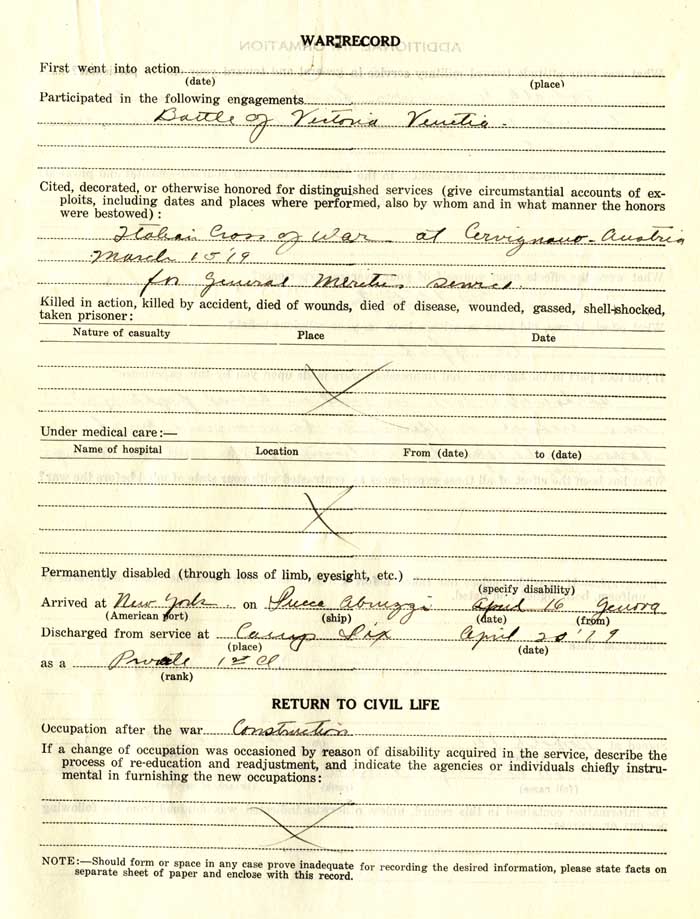 WAR RECORD
First went into action
(date) (place)
Participated in the following engagements
Battle of Victoria Venetia.
Cited, decorated, or otherwise honored for distinguished services (give circumstantial accounts of ex-
ploits, including dates and places where performed, also by whom and in what manner the honors
were bestowed):
Italian Cross of War at Cervignano-Austria
March 15 '19
for General service.
Killed in action, killed by accident, died of wounds, died of disease, wounded, gassed, shell-shocked,
taken prisoner:
Nature of casualty Place Date
Under medical care:—
Name of hospital Location From (date) to (date)
Permanently disabled (through loss of limb, eyesight, etc.)
(specify disability)
Arrived at New York on Abruzzi April 16 Genova
(American port) (ship) (date) (from)
Discharged from service at Camp Dix April 20 '19
(place) (date)
as a Private 1st Cl
(rank)
RETURN TO CIVIL LIFE
Occupation after the war Construction
If a change of occupation was occasioned by reason of disability acquired in the service, describe the
process of re-education and readjustment, and indicate the agencies or individuals chiefly instru-
mental in furnishing the new occupations:
NOTE:—Should form or space in any case prove inadequate for recording the desired information, please state facts on
separate sheet of paper and enclose with this record.